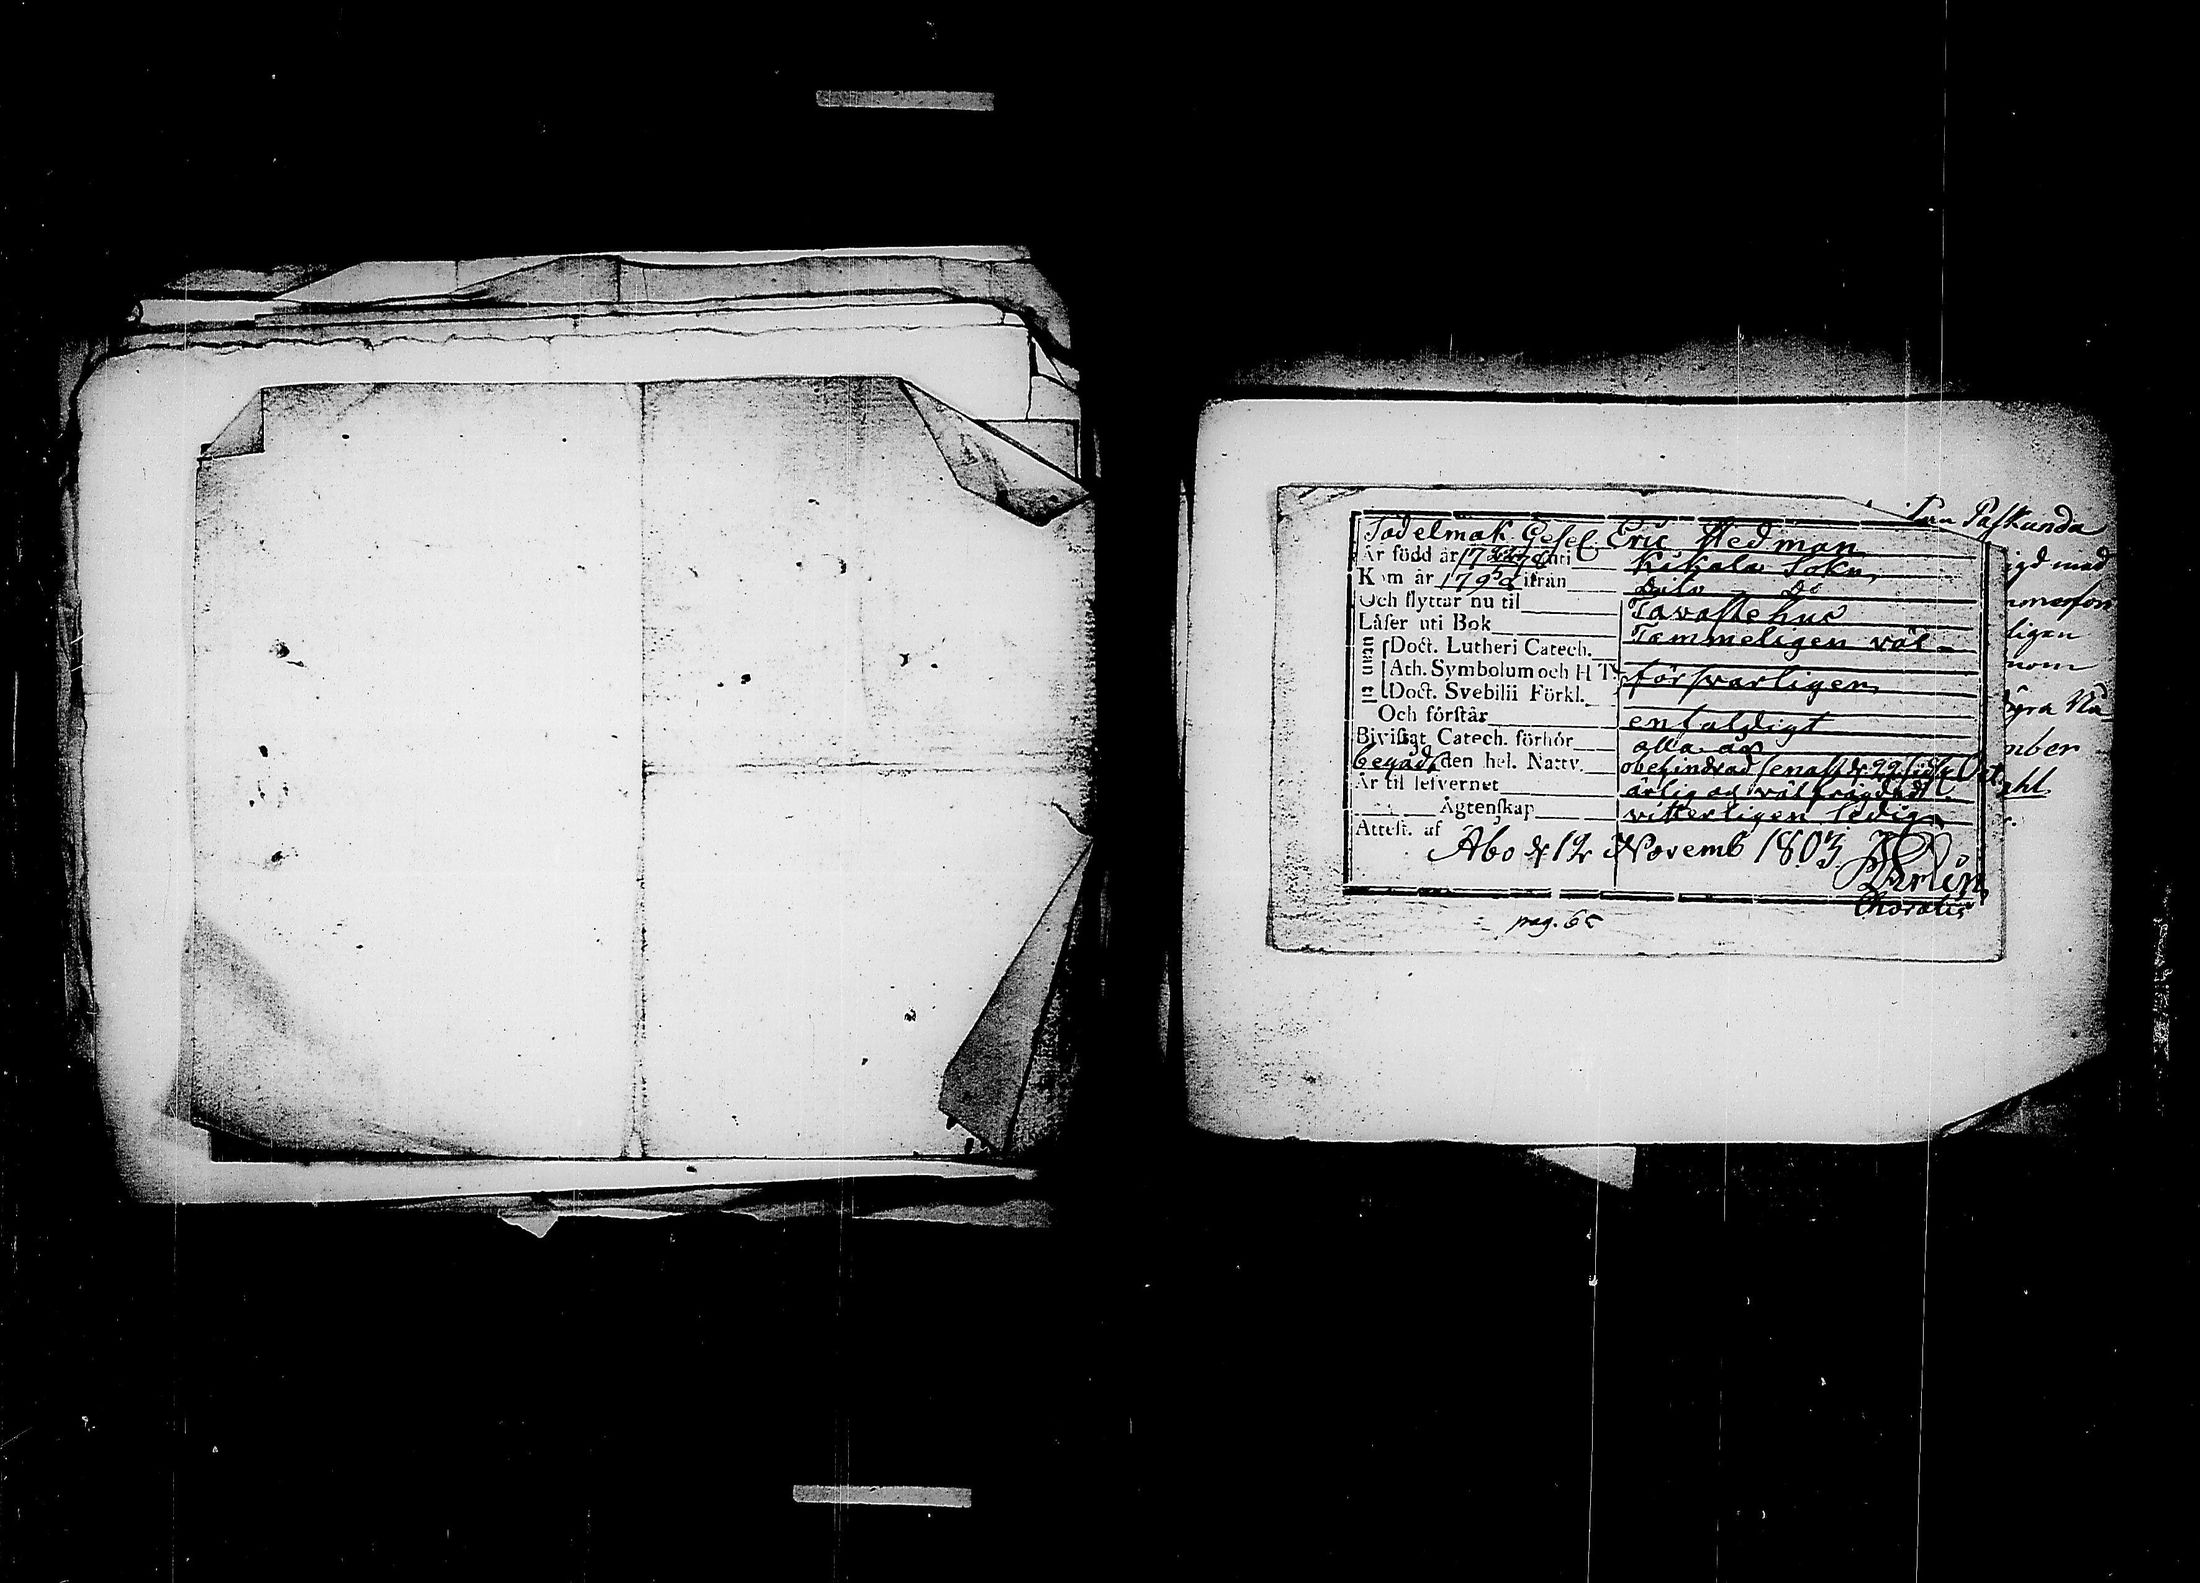 Sadelmak Gesel Eric Hedman
Är född år 17 uti Kikala Sokn
Kom år 179 ifrån Dito Do
Och flyttar nu til Tavastehus
Låser uti Bok Tämmeligen väl
Doct. Lutheri Catech.
Ath. Symbolum och H T. försvarligen
Doct. Svebilii Förkl.
Och förstår enfaldigt
Bivistat Catech. förhör alla år
begådt den hel. Nattv. obehindrad senast d 22 sidstl Oct.
Är til lefvernet ärlig och välfrägdad
Ägtenskap vitterligen ledig
Attest. af Åbo d 12 Novemb 1803
pag. 65
Paskunda
med
ligen
nom
mber